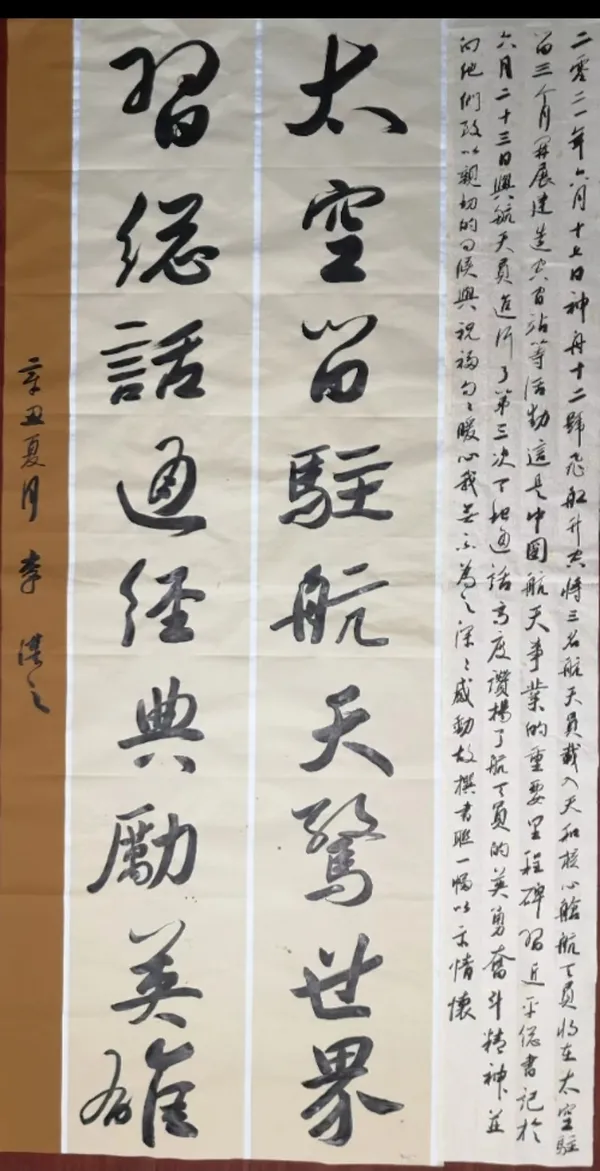 二零二一年六月十七日神舟十二號飛船升空將三名航天員載入天和核心艙航天員將在太空駐
留三个月開展建造空間站等活動這是中國航天事業的重要里程碑習近平總書記於
六月二十三日與航天員進行了第三次天地通話高度讚揚了航天員的英勇奮斗精神並
向他們致以親切的問候與祝福句々暖心我無不為之深々感動故撰書聯一幅以示情懷
太空留駐航天驚世界
習總話通經典勵英雄
辛丑夏月 李